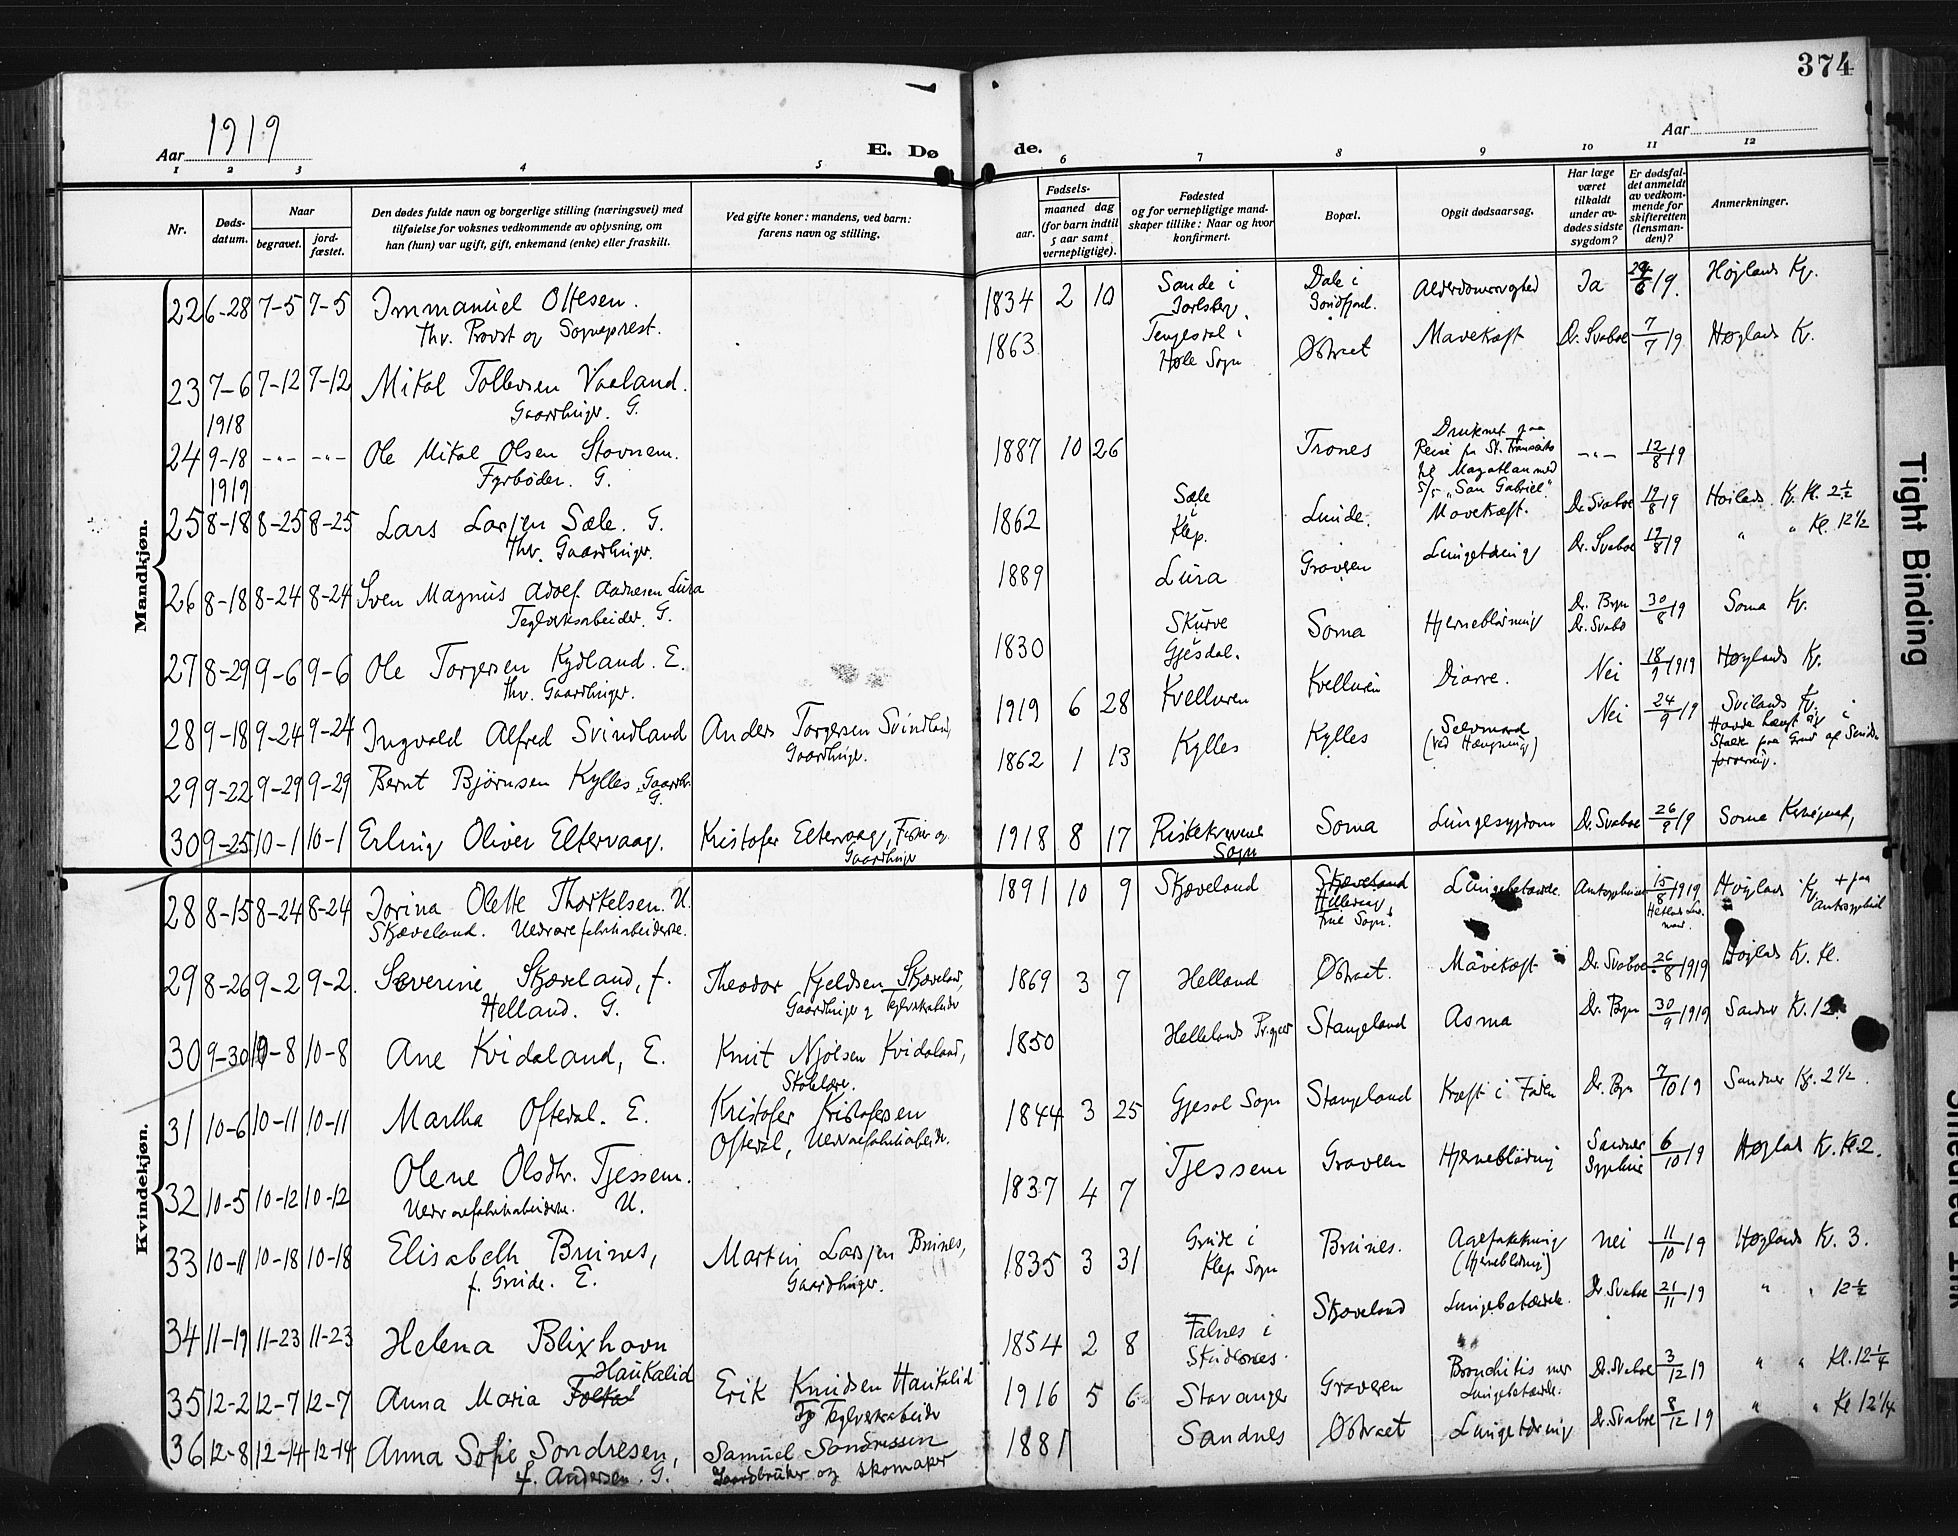 374
Aar 1919
E. Dø
de.
Aar
1 2 3 4 5
6 7 8 9 10 11 12
Nr.
Døds-
datum.
Naar
begravet.
jord-
fæstet.
Den dødes fulde navn og borgerlige stilling (næringsvei) med
tilføielse for voksnes vedkommende av oplysning, om
han (hun) var ugift, gift, enkemand (enke) eller fraskilt.
Ved gifte koner: mandens, ved barn:
farens navn og stilling.
Fødsels-
aar.
maaned dag
(for barn indtil
5 aar samt
vernepligtige).
Fødested
og for vernepligtige mand-
skaper tillike: Naar og hvor
konfirmert.
Bopæl.
Opgit dødsaarsag.
Har læge
været
tilkaldt
under av-
dødes sidste
sygdom?
Er dødsfal-
det anmeldt
av vedkom-
mende for
skifteretten
(lensman-
den)?
Anmerkninger.
Mandkjøn.
22 6-28 7-5 7-5 Immanuel Oftesen.
thv. Provst og Sogneprest.
1834 2 10 Sande i
Jarlsberg.
Dale i
Søndfjord.
Ja
Højlands Kg.
23 7-6 7-12 7-12 Mikal Tollevsen Vaaland.
Gaardbruger. G.
1863 Tengesdal i
Høle Sogn
Østraet Mavekræft Dr. Svaboe 7/7 19 Høglands K.
1918
24 9-18 -"- -"- Ole Mikal Olsen Stavnem.
Fyrbøder. G.
1887 10 26 Trones Druknet paa
Reise fra St. Fransisko
til Mazatlan med
S/S „San Gabriel".
-"- 12/8 19
1919
25 8-18 8-25 8-25 Lars Larsen Sæle. G.
thv. Gaardbruger.
1862 Sæle
Klep.
Lunde. Mavekræft. Dr. Svaboe 19/8 19 Høilands K. Kl. 2½
26 8-18 8-24 8-24 Sven Magnus Adolf Aadnesen Lura
Teglverksarbeider. G.
1889 Lura Graveren Lungetæring Dr. Svaboe 19/8 19 " " Kl. 12½
27 8-29 9-6 9-6 Ole Torgersen Kydland. E.
thv. Gaardbruger.
1830 Skurve
Gjesdal.
Soma Hjerneblødning Dr. Bryn
Dr. Svabo
30/8 19 Soma Kg.
28 9-18 9-24 9-24 Ingvald Alfred Svindland Anders Torgersen Svindland,
Gaardbruger.
1919 6 28 Kvelluren Kvelluren Diarre. Nei 18/9 1919 Høylands Kg.
29 9-22 9-29 9-29 Bernt Bjørnsen Kylles, Gaardbr.
G.
1862 1 13 Kylles Kylles Selvmord
(ved Hængning)
Nei 24/9 19 Svilands Kg.
Havde hængt sig i
Stalden paa Grund af Sinds-
forvirring.
30 9-25 10-1 10-1 Erling Oliver Eltervaag. Kristofer Eltervaag, Fisker og
Gaardbruger
1918 8 17 Riskekværnes
Sogn
Soma Lungesygdom Dr. Svaboe 26/9 19 Soma
Kvindekjøn.
28 8-15 8-24 8-24 Jorina Olette Thorkelsen. U.
Skjæveland. Uldvarefabrikarbeiderske.
1891 10 9 Skjæveland Skjæveland
Hillevaag
Frue Sogn.
Lungebetændelse. 15/8 1919
Høylands Kg.
29 8-26 9-2 9-2 Severine Skjæveland, f.
Helland. G.
Theodor Kjeldsen Skjæveland,
Gaardbruger og Teglverksarbeider
1869 3 7 Helland Østraet. Mavekræft Dr. Svaboe 26/8 1919 Høylands K. Kl.
30 9-30 10-8 10-8 Ane Kvidaland, E. Knut Njølsen Kvidaland,
Skolelærer.
1850 Hellelands Stangeland Asma Dr. Bryn 30/9 1919 Sandnes K. 12
31 10-6 10-11 10-11 Martha Oftedal. E. Kristofer Kristofersen
Oftedal, Uldvarefabrikarbeider.
1844 3 25 Gjesdal Sogn Stangeland Kræft i Foden Dr. Bryn 7/10 19 Sandnes Kg. 2½.
32 10-5 10-12 10-12 Olene Olsdtr. Tjessem.
Uldvarefabrikarbeiderske. U.
1837 4 7 Tjessem Graveren Hjerneblødning Sandnes
Sygehus
6/10 19 Høylands K. Kl. 2.
33 10-11 10-18 10-18 Elisabeth Bruines,
f. Grude. E.
Martin Larsen Bruines,
Gaardbruger.
1835 3 31 Grude i
Klep Sogn
Bruines.
(Hjerneblødning)
nei 11/10 19 Høylands K. 3.
34 11-19 11-23 11-23 Helena Blixhavn
1854 2 8 Falnes i
Skudesnes.
Skjæveland Lungebetændelse. Dr. Svaboe 21/11 19 " " 12½
35 12-2 12-7 12-7 Anna Maria Haukalid Erik Knudsen Haukalid
Teglverksarbeider
1916 5 6 Stavanger Graveren Bronchitis med
Lungebetændelse.
Dr. Svaboe 3/12 19 " " Kl. 12¼
36 12-8 12-14 12-14 Anna Sofie Sondresen,
f. Andersen. G.
Samuel Sondresen
Gaardbruker og skomaker
1881 Sandnes Østraet Lungetæring Dr. Svaboe 8/12 19 " " Kl 12¼
Tight Binding